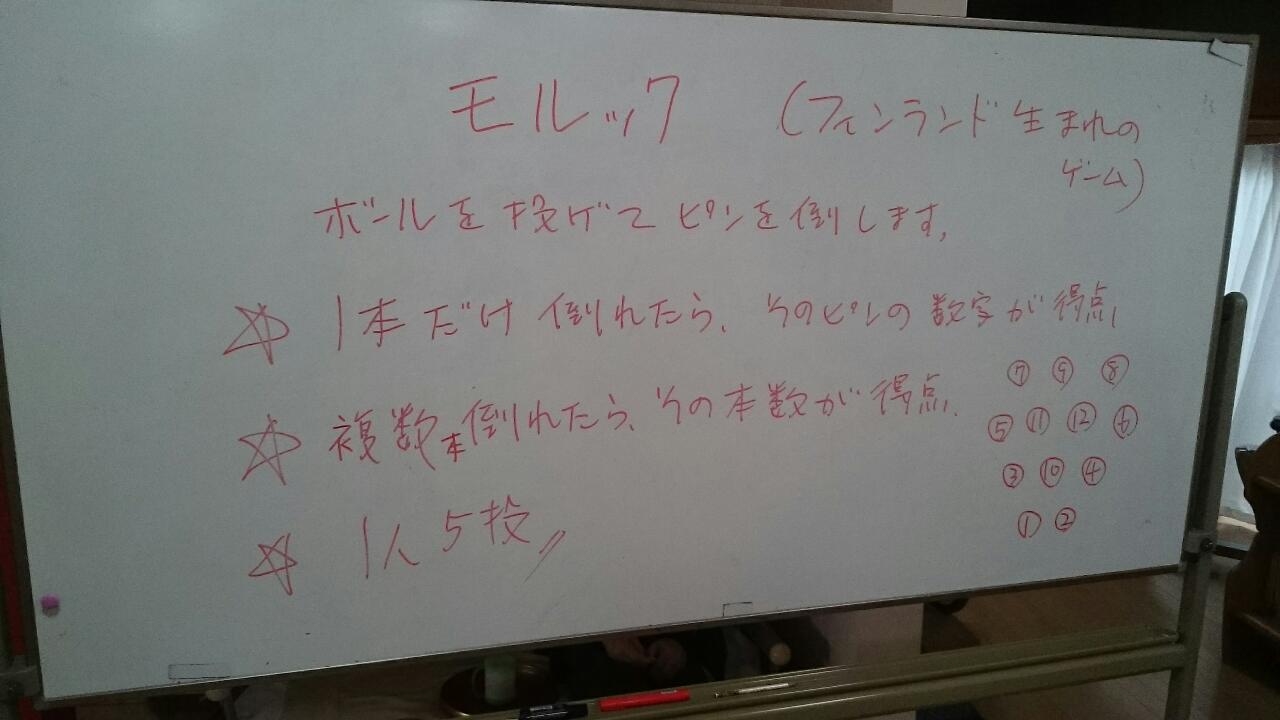 モルック (フィンランド生まれの
ゲーム)
ボールを投げてピンを倒します。
☆ 1本だけ倒れたら、そのピンの数字が得点。
☆ 複数本倒れたら、その本数が得点。
☆ 1人5投〃
⑦ ⑨ ⑧
⑤ ⑪ ⑫ ⑥
③ ⑩ ④
① ②